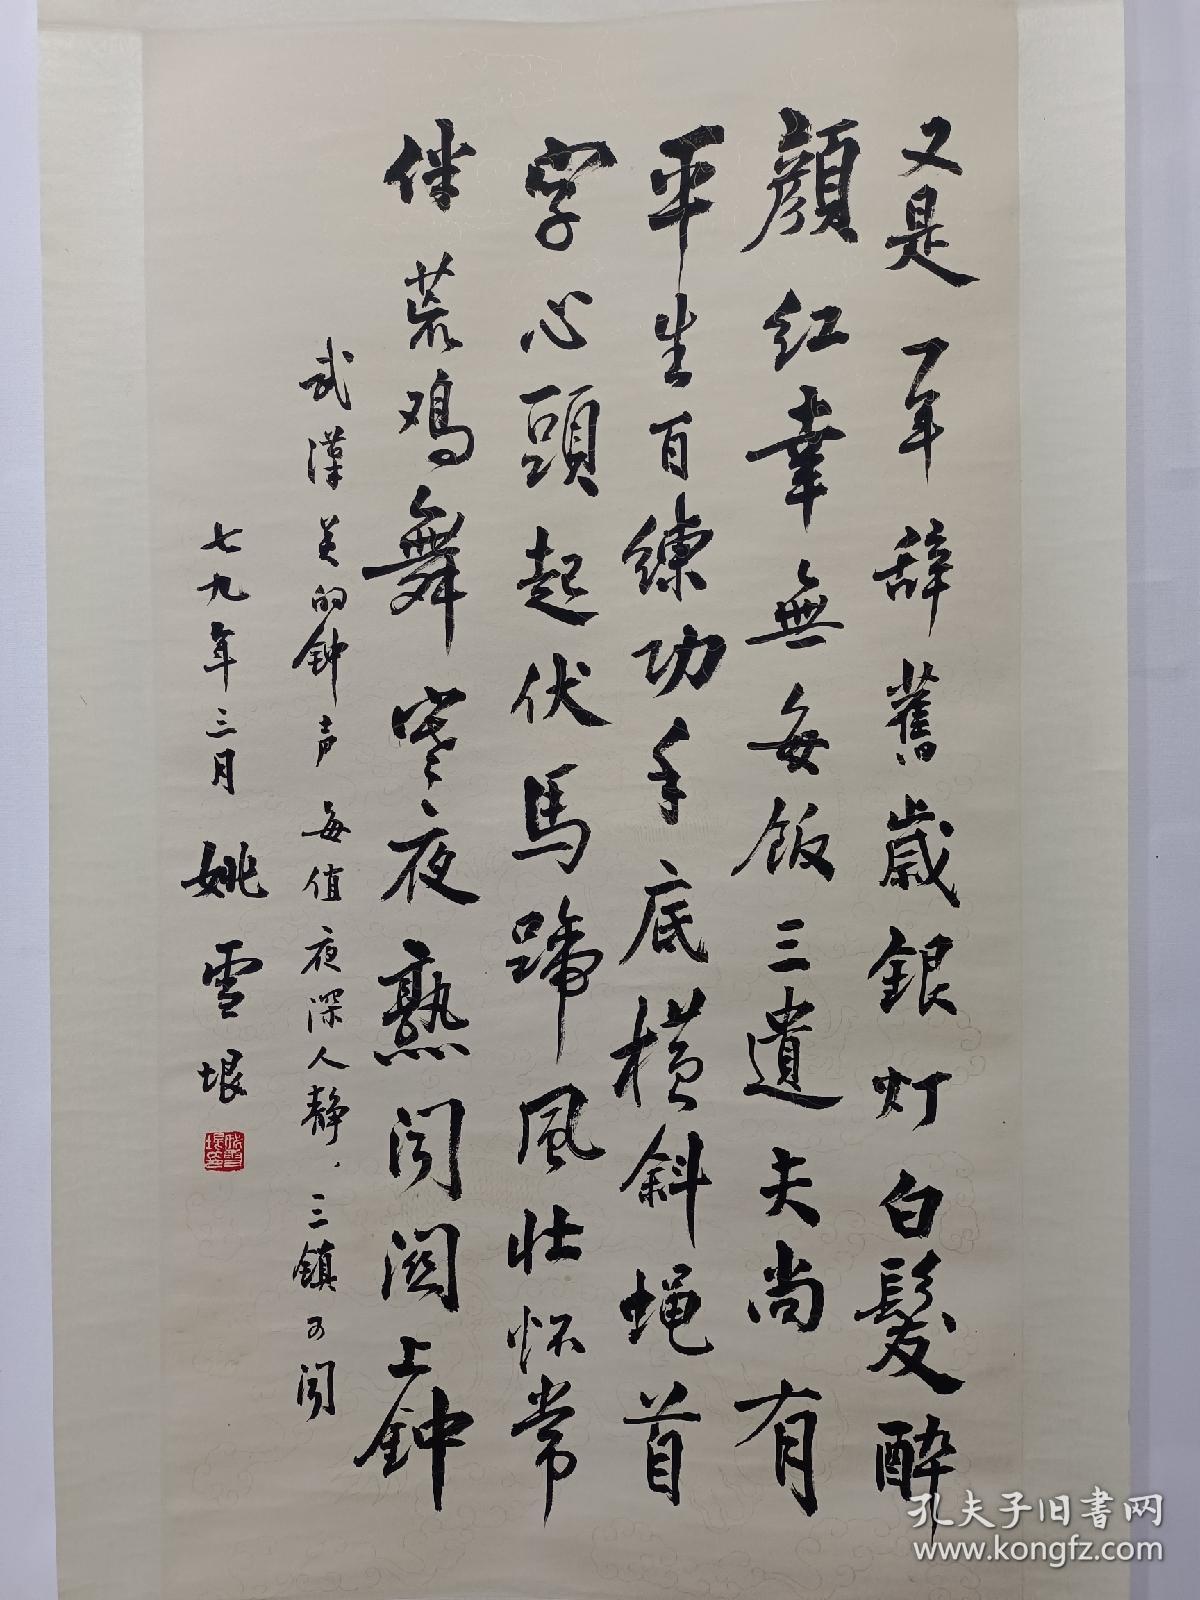 又是一年辞舊歲銀灯白髮醉
顏紅幸無每飯三遺矢尚有
平生百練功手底橫斜蝇首
字心頭起伏馬蹄風壯怀常
伴荒鸡舞寒夜熟闻関上钟
武漢关的钟声每值夜深人静，三鎮可闻
七九年三月 姚雪垠
孔夫子旧书网
www.kongfz.com